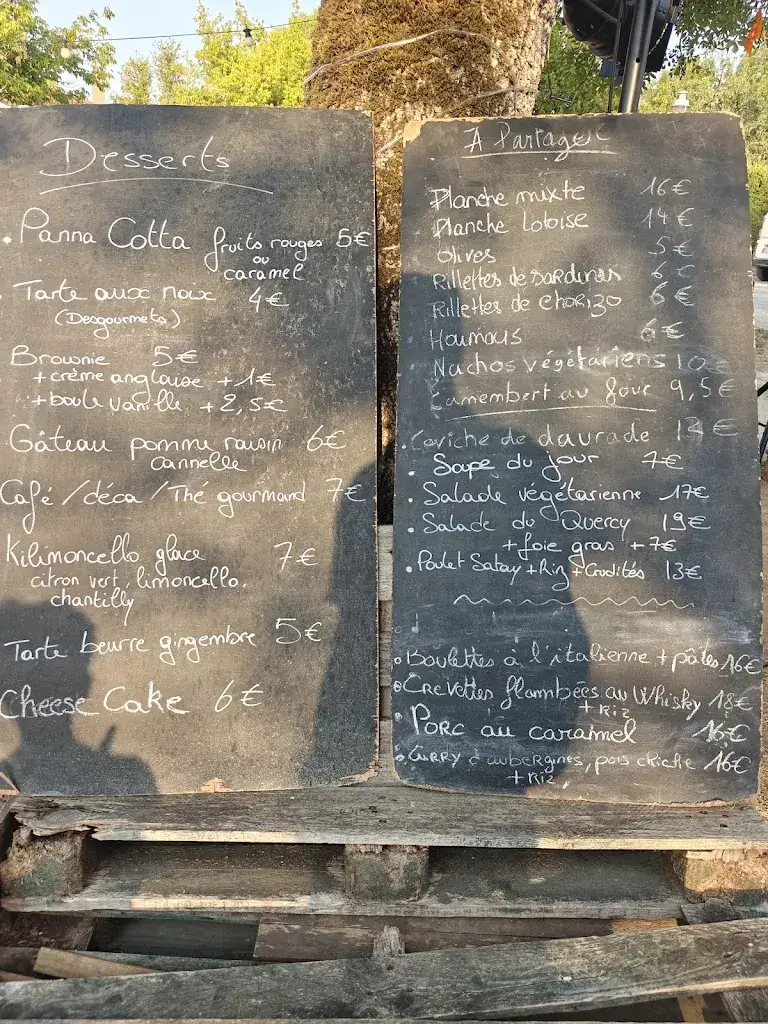 Desserts
Panna Cotta fruits rouges 5€
ou
caramel
Tarte aux noix 4€
(Desgourmets)
Brownie 5€
+ crème anglaise + 1€
+ boule vanille + 2,5€
Gâteau pomme raisin 6€
cannelle
Café / déca / Thé gourmand 7€
Kilimoncello glace 7€
citron vert, limoncello,
chantilly
Tarte beurre gingembre 5€
Cheese Cake 6€
A Partager
Planche mixte 16€
Planche Lotoise 14€
Olives 5€
Rillettes de sardines 6€
Rillettes de chorizo 6€
Houmous 6€
Nachos végétariens 10€
Camembert au four 9,5€
. Ceviche de daurade €
. Sope du jour 7€
. Salade végétarienne 17€
. Salade du Quercy 19€
+ foie gras + 7€
. Poulet Satay + Riz + Crudités 13€
Boulettes à l'italienne + pâtes 16€
Crevettes flambées au Whisky 18€
+ Riz
Porc au caramel 16€
Curry d'aubergines, pois chiche 16€
+ Riz